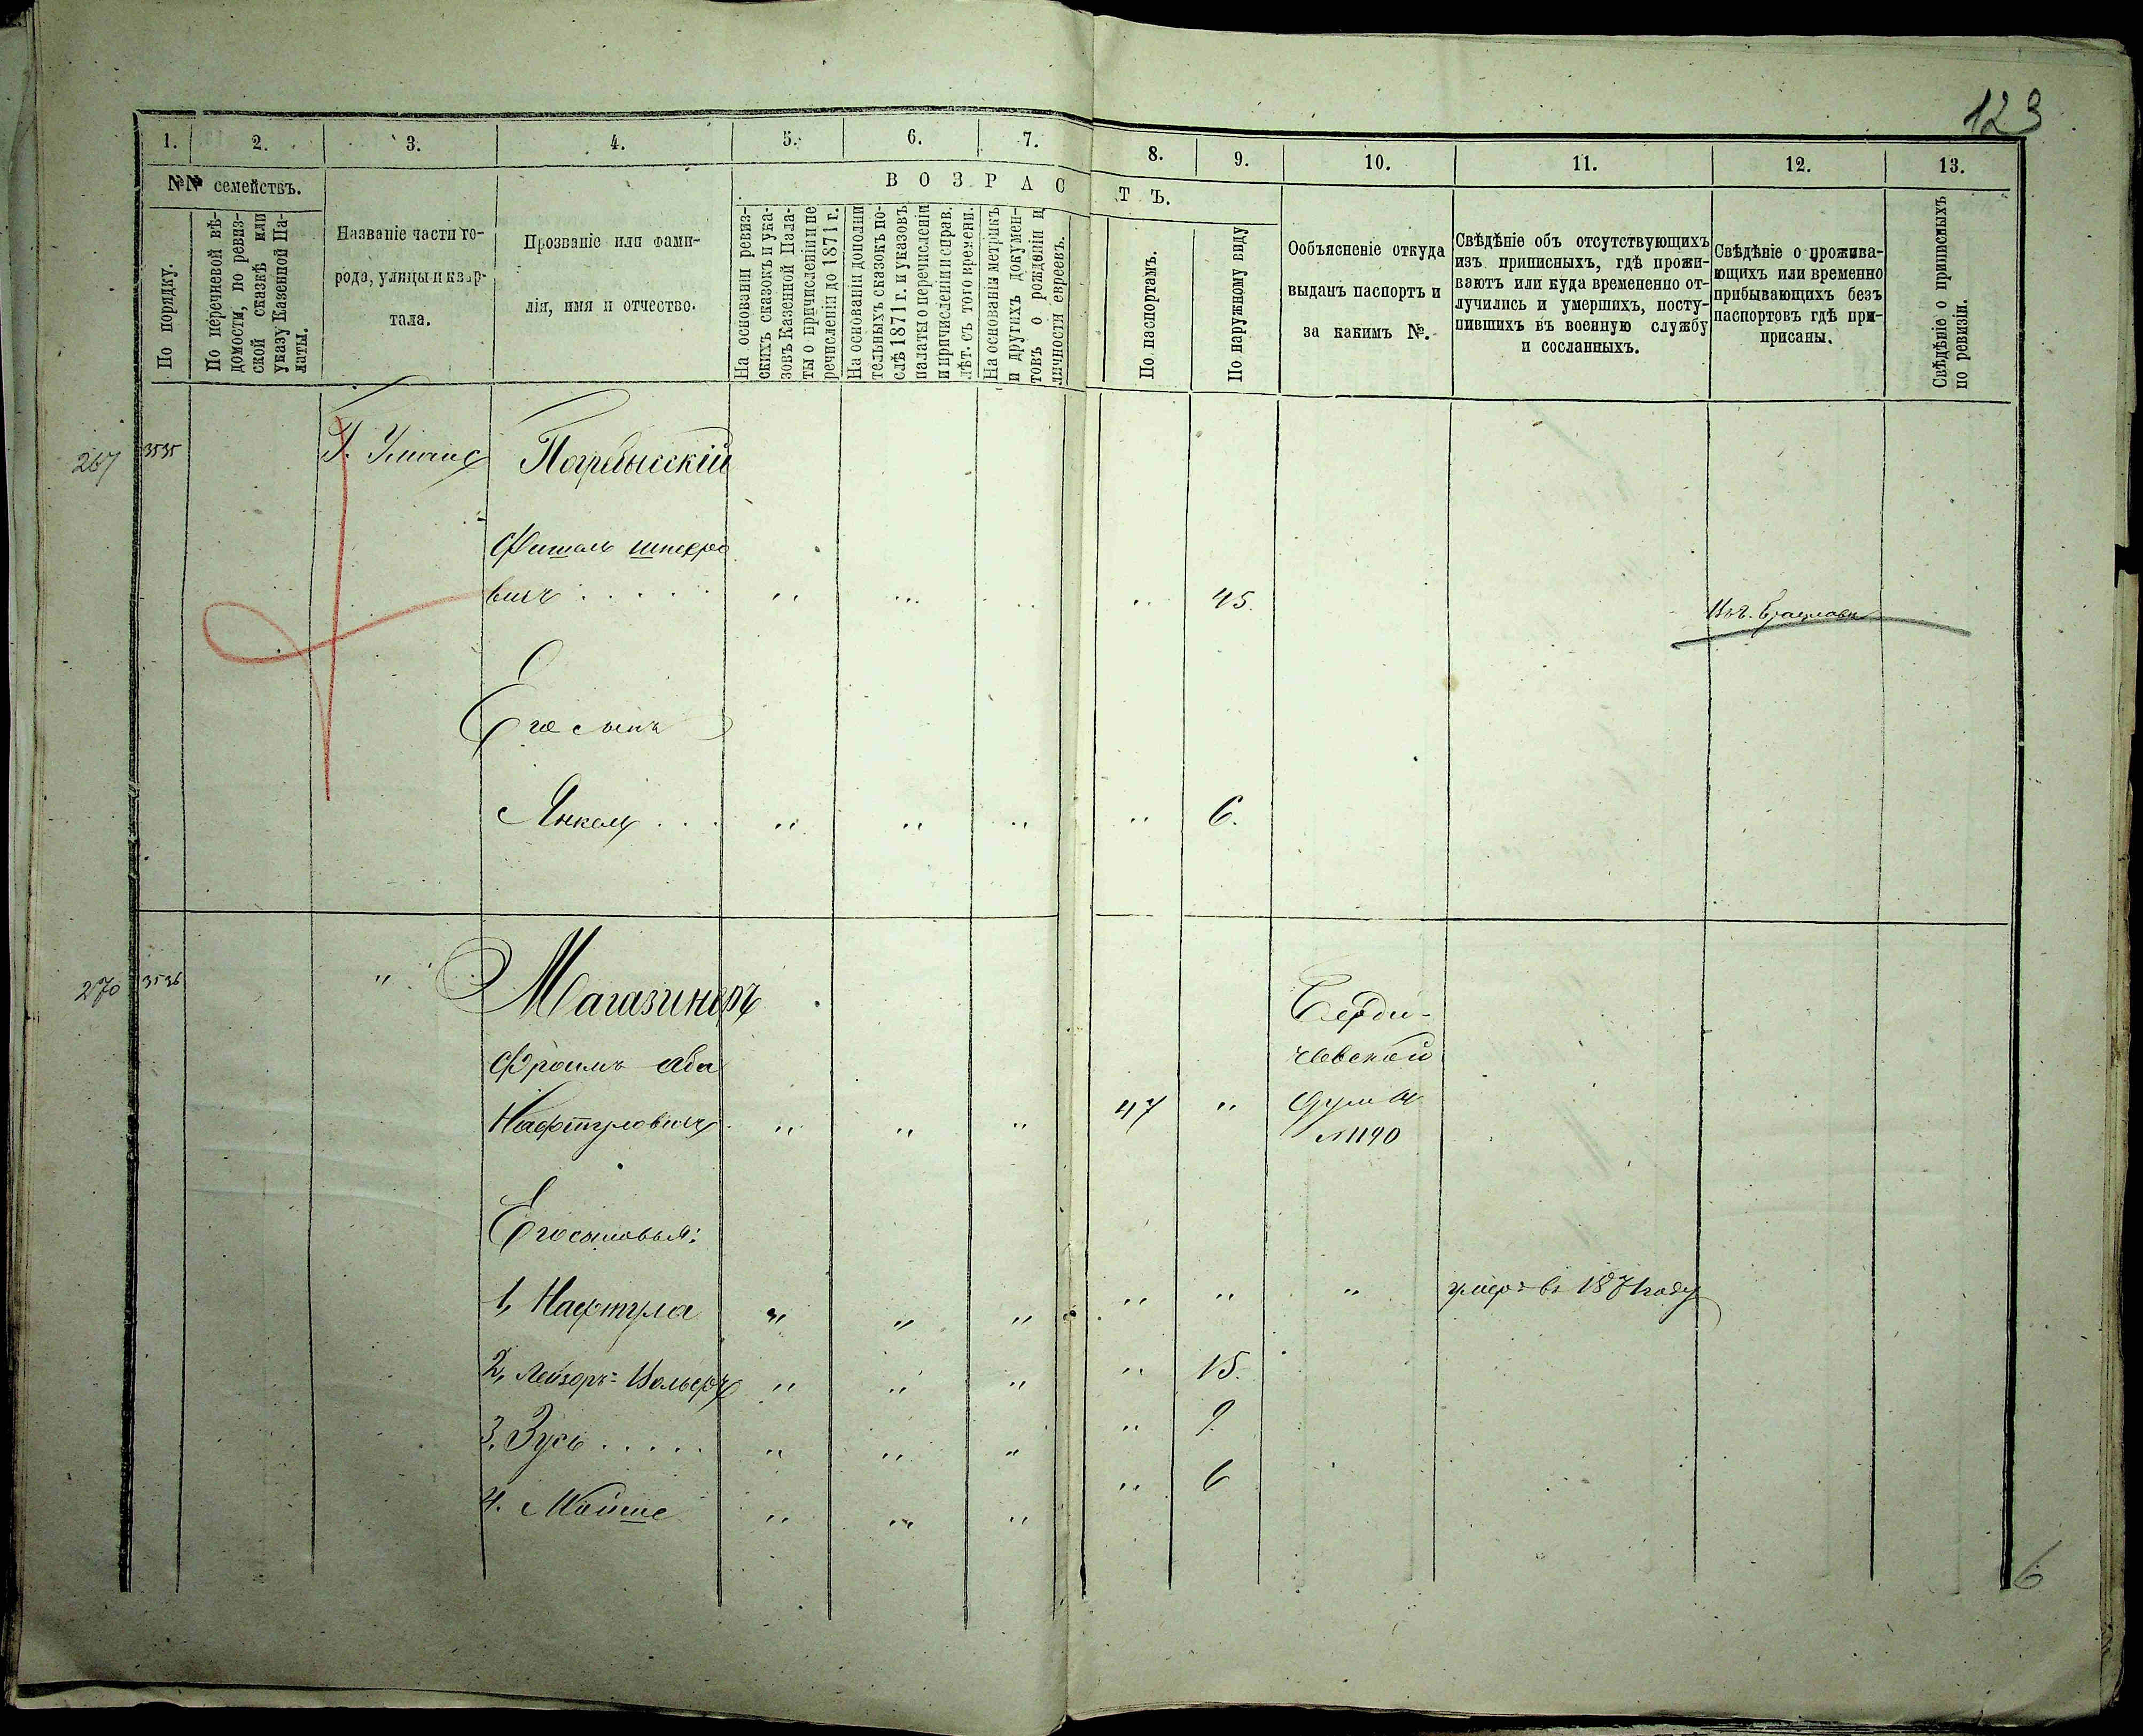 123
1. 2. 3. 4. 5. 6. 7. 8. 9. 10. 11. 12. 13.
№№ семействъ.
В О З Р А С Т Ъ.
По порядку.
По перечневой вѣ-
домости, по ревиз-
ской сказкѣ или
указу Казенной Па-
латы.
Названіе части го-
рода, улицы и квар-
тала.
Прозваніе или фами-
лія, имя и отчество.
На основаніи ревиз-
скихъ сказокъ и ука-
зовъ Казенной Пала-
ты о причисленіи и пе
речисленіи до 1871 г.
На основаніи дополни
тельныхъ сказокъ по-
слѣ 1871 г. и указовъ
палаты о перечисленіи
и причисленіи и справ.
лѣт. съ того времени.
На основаніи метрикъ
и другихъ докумен-
товъ о рожденіи и
личности евреевъ.
По паспортамъ.
По наружному виду
Ообъясненіе откуда
выданъ паспортъ и
за какимъ №.
Свѣдѣніе объ отсутствующихъ
изъ приписныхъ, гдѣ прожи-
ваютъ или куда временно от-
лучились и умершихъ, посту-
пившихъ въ военную службу
и сосланныхъ.
Свѣдѣніе о прожива-
ющихъ или временно
прибывающихъ безъ
паспортовъ гдѣ при-
приcаны.
Свѣдѣніе о приписныхъ
по ревизіи.
267 3535 Г. Умань Погребысскій
Фишель Шпехро
вичъ . . . . . „ „ „ „ 45.
Его сынъ
Янкель . . . „ „ „ „ 6.
270 3536 „ Магазинеръ
Берди-
Фроимъ Аба
чевской
Нафтуловичъ „ „ „ 47 „ Думы
№ 1190
Его сыновья:
1, Нафтула „ „ „ „ „ „ умеръ въ 1871 году
2, Лейзоръ-Вольфъ „ „ „ „ 15.
3. Зусь . . . . . „ „ „ „ 9.
4. Мойше „ „ „ „ 6
6